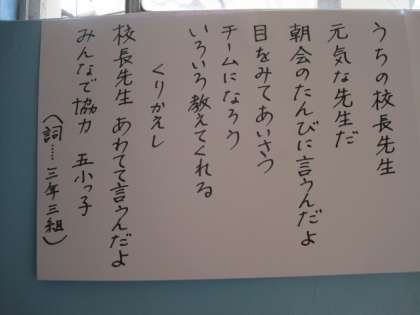 うちの校長先生
元気な先生だ
朝会のたんびに言うんだよ
目をみてあいさつ
チームになろう
いろいろ教えてくれる
くりかえし
校長先生 あわてて言うんだよ
みんなで協力 五小っ子
(詞……三年三組)